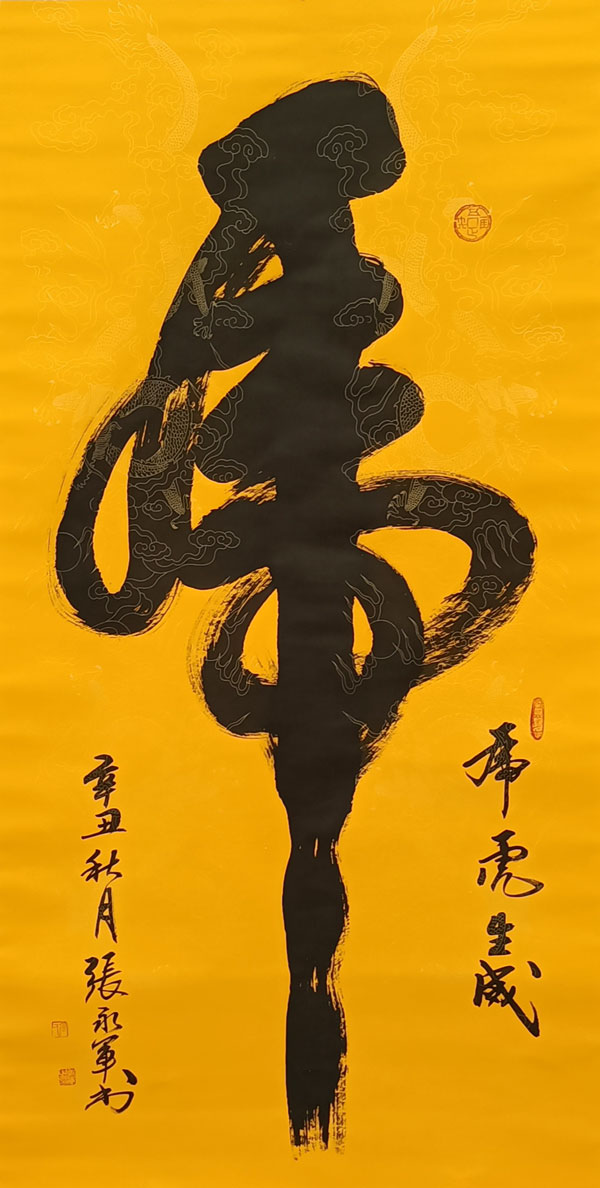 虎
虎虎生威
辛丑秋月張永軍书